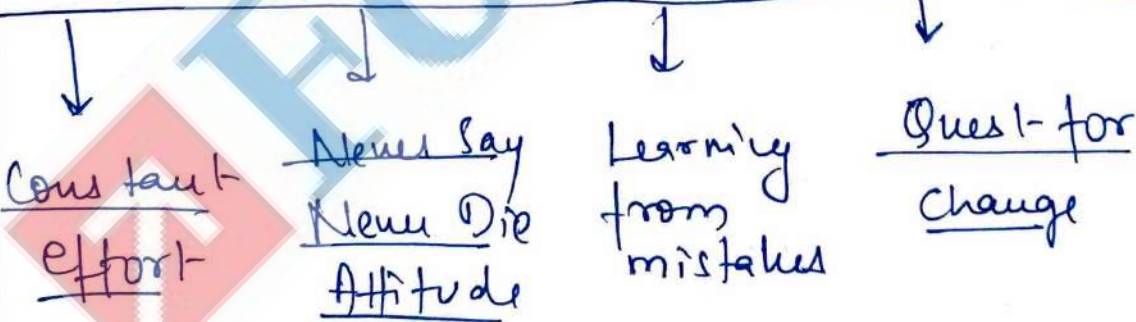 Constant
effort
Never Say
Never Die
Attitude
Learning
from
mistakes
Quest for
change